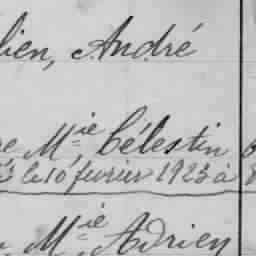 lien, André
Mie Célestin
le 10 fevrier 1923 à
Mie Adrien